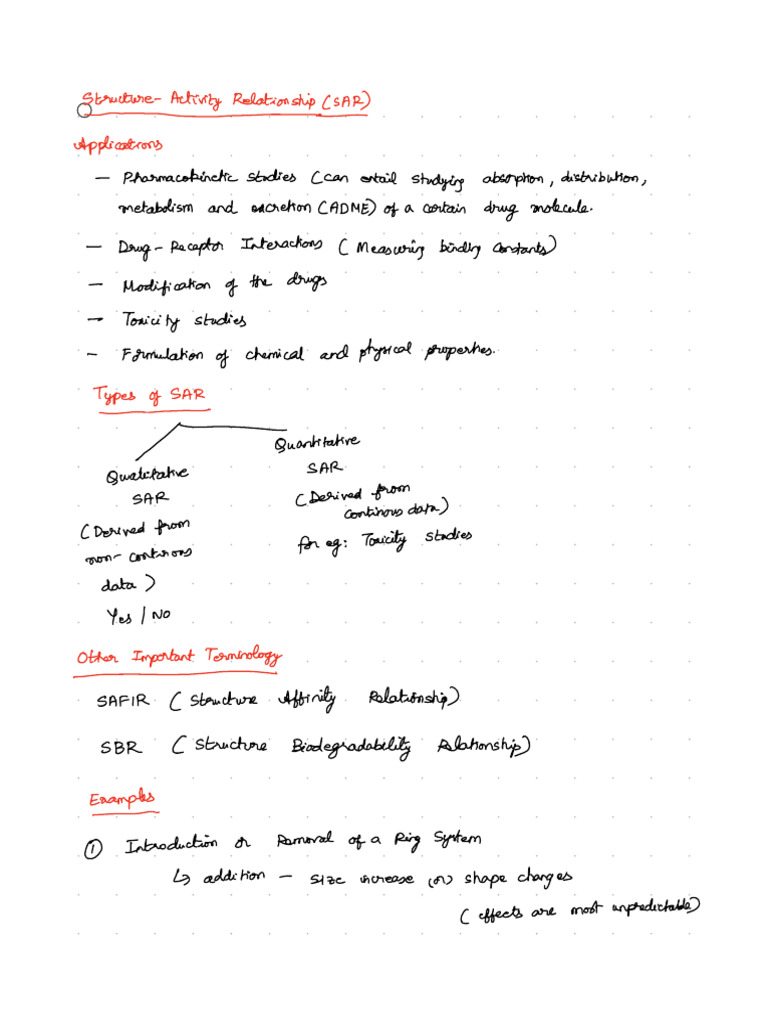 Structure- Activity Relationship (SAR)
Applications
— Pharmacokinetic studies (can entail studying absorption, distribution,
metabolism and excretion (ADME) of a certain drug molecule.
— Drug-Receptor Interactions (Measuring binding constants)
— Modification of the drugs
— Toxicity studies
— Formulation of chemical and physical properties.
Types of SAR
Qualitative
SAR
(Derived from
non-continous
data)
Yes / No
Quantitative
SAR
(Derived from
continous data)
for eg: Toxicity studies
Other Important Terminology
SAFIR (Structure Affinity Relationship)
SBR (Structure Biodegradability Relationship)
Examples
① Introduction or Removal of a Ring System
↳ addition — size increase (or) shape changes
(effects are most unpredictable)